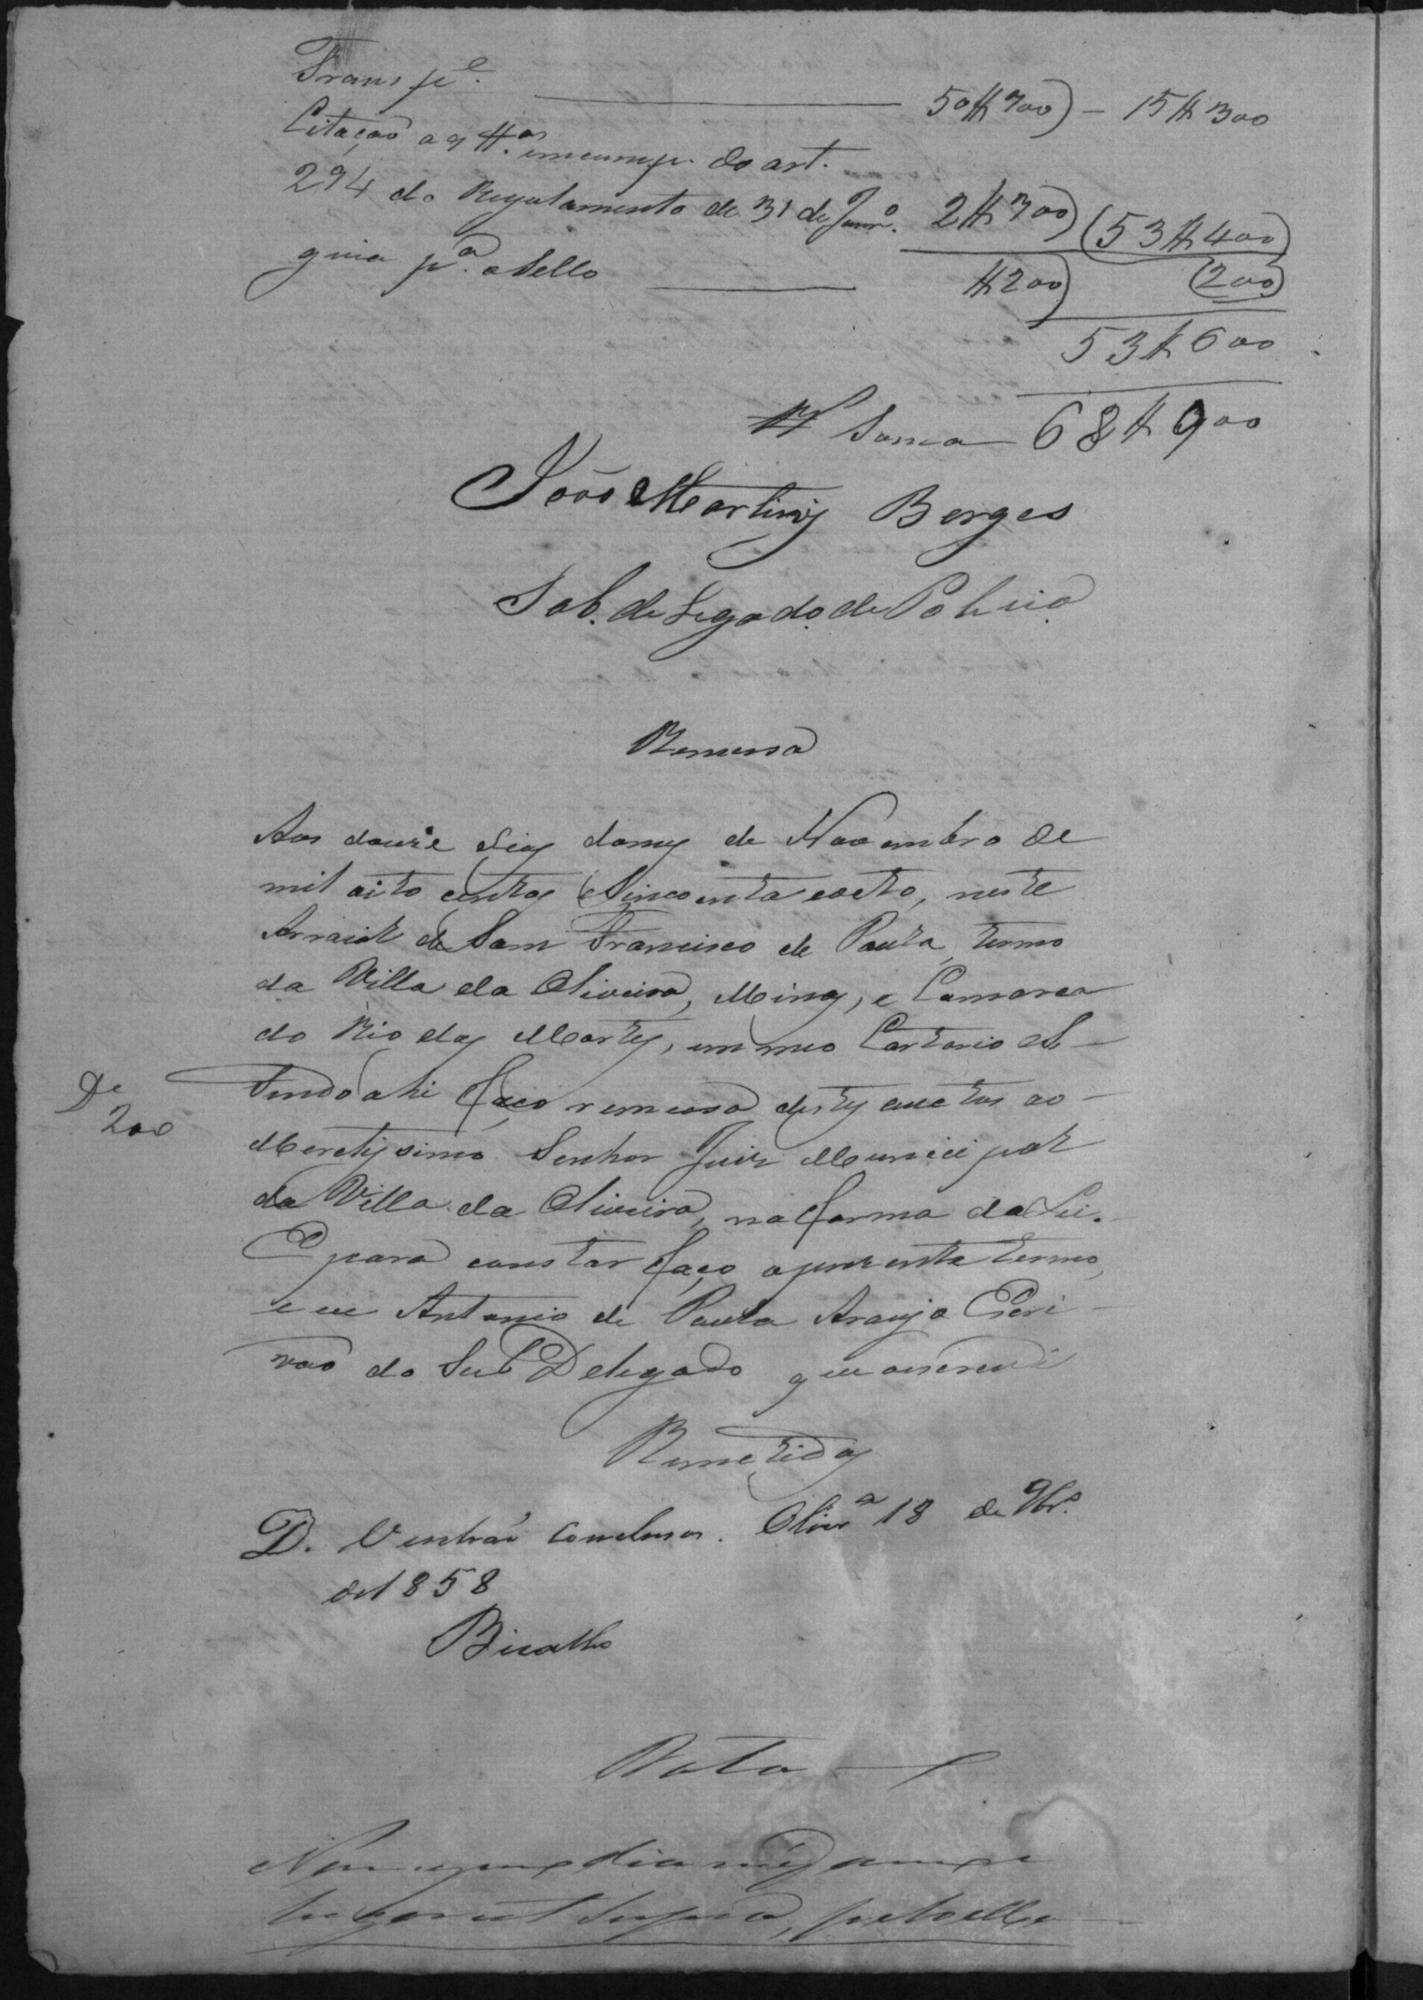 Transpe. 50$700) - 15$300
Citação a 9 ttas em cump. do art.
294 do Regulamento de 31 de Janro. 2$700) (53$400)
guia pa. o sello $200) (200)
53$600
Soma 68$900
João Martins Borges
Sob. delegado. de Policia
Remessa
Aos douze dias do mes de Novembro de
mil oito centos Sincoenta eoito, neste
Arraial de Sam Francisco de Paula, termo
da Villa da Oliveira, Minas, e Comarca
do Rio das Mortes, em meo Cartorio e
De
200
Sendo ahi faço remessa destes auctos ao
Meretissimo Senhor Juiz Municipal
da Villa da Oliveira, na forma da Lei.
E para constar faço o presente termo,
e eu Antonio de Paula Araujo Escri-
vao do Sub Delegado que o escrevi
Remetidos
D. Venhão conclusos. Olivra 18 de 9bro.
de 1858
Bicalho
Data
No mesmo dia mes anno e
lugar ut supra, pelo